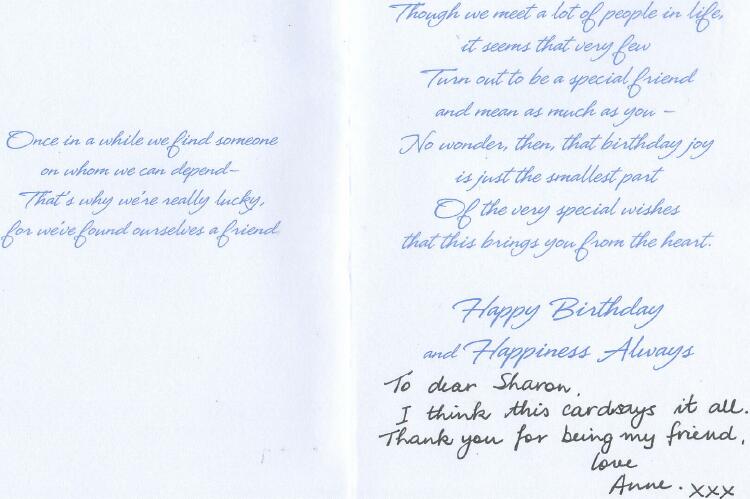 Once in a while we find someone
on whom we can depend–
That's why we're really lucky,
for we've found ourselves a friend
Though we meet a lot of people in life,
it seems that very few
Turn out to be a special friend
and mean as much as you –
No wonder, then, that birthday joy
is just the smallest part
Of the very special wishes
that this brings you from the heart.
Happy Birthday
and Happiness Always
To dear Sharon,
I think this cardsays it all.
Thank you for being my friend.
love
Anne. xxx